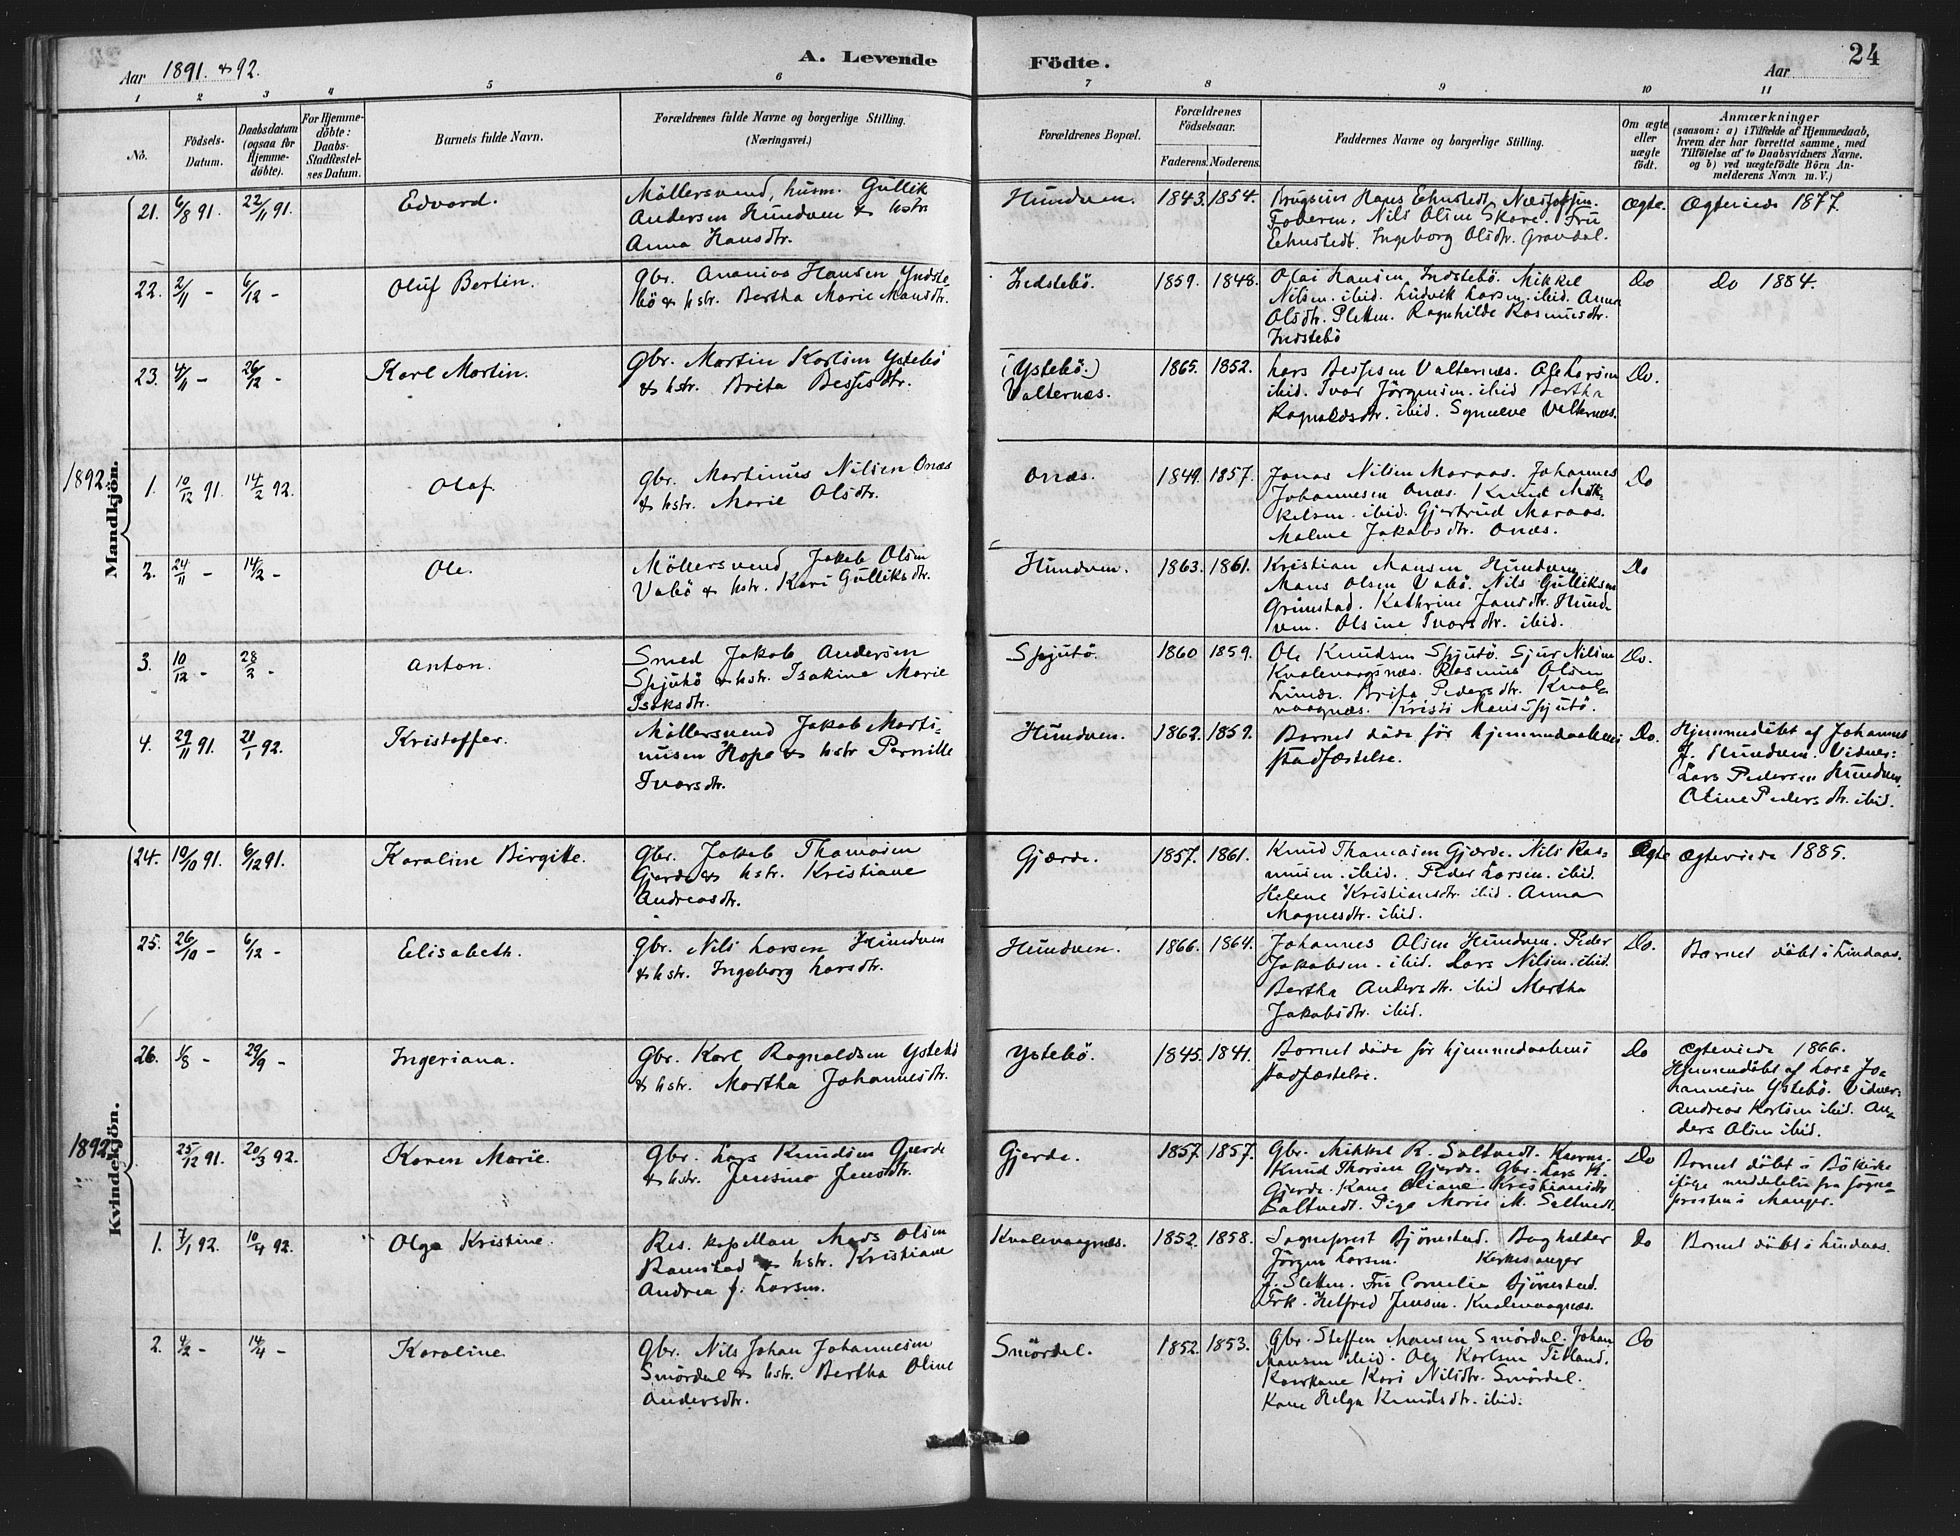 Aar 1891. & 92.
A. Levende
Födte.
Aar
24
1 2 3 4 5 6 7 8 9 10 11
No.
Födsels-Datum.
Daabsdatum (ogsaa for Hjemme-döbte).
For Hjemme-döbte: Daabs-Stadfæstel-ses Datum.
Barnets fulde Navn.
Forældrenes fulde Navne og borgerlige Stilling. (Næringsvei.)
Forældrenes Bopæl.
Forældrenes Födselsaar.
Faderens. Moderens.
Faddernes Navne og borgerlige Stilling.
Om ægte eller uægte födt.
Anmærkninger
(saasom: a) i Tilfælde af Hjemmedaab, hvem der har forrettet samme, med Tilföielse af to Daabsvidners Navne. og b) ved uægtefödte Börn An-melderens Navn m. V.)
Mandkjön.
21. 6/8 91. 22/11 91. Edvard.
Möllersvend, husm. Gullik
Andersen Hundven & hstr
Anna Hansdtr.
Hundven. 1843. 1854.
Nils Olsen Skare. Fru
Ingeborg Olsdtr. Gravdal.
Ægte. Ægteviede 1877.
22. 2/11 - 6/12 - Oluf Bertin.
Gbr. Ananias Hansen Yndste
bö & hstr. Bertha Marie Mansdtr.
Indstebö. 1859. 1848.
Olai Hansen Indstebö. Mikkel
Nilsen. ibid. Ludvik Larsen. ibid. Anna
Olsdtr. Sletten. Ragnhilde Rasmusdtr.
Indstebö
Do Do 1884.
23. 4/11 - 26/12 - Karl Martin.
Gbr. Martin Karlsen Ystebö
& hstr. Brita Bessesdtr.
(Ystebö.)
Valternæs.
1865. 1852.
Lars Bessesen Valternæs. Ole Larsen
ibid. Ivar Jörgensen. ibid Bertha
Ragnaldsdtr. ibid. Synneve Valternæs.
Do.
1892.
1. 10/12 91. 14/2 92. Olaf.
Gbr. Martinus Nilsen Onæs
& hstr. Marie Olsdtr.
Onæs. 1849. 1857.
Jonas Nilsen Maraas. Johannes
Johannesen Onæs. Knud Mik-
kelsen. ibid. Gjertrud Maraas.
Malene Jakobsdtr. Onæs.
Do
2. 24/11 - 14/2 - Ole.
Möllersvend Jakob Olsen
Vabö & hstr. Kari Gulliksdtr.
Hundven. 1863. 1861.
Kristian Mansen Hundven
Mans Olsen Vabö. Nils Gulliksen
Grimstad. Kathrine Jansdtr. Hund-
ven. Olsine Ivarsdtr. ibid.
Do
3. 10/12 - 28/2 - Anton.
Smed Jakob Andersen
Spjutö & hstr. Isakine Marie
Isaksdtr.
Spjutö. 1860 1859.
Ole Knudsen Spjutö. Sjur Nilsen
Kvalevaagnæs. Rasmus Olsen
Lunde. Brita Pedersdtr. Kval-
vaagnæs. Kristi Mans Spjutö.
Do.
4. 29/11 91. 20/1 92. Kristoffer.
Möllersvend Jakob Marti-
nusen Hope & hstr Pernille
Ivarsdtr.
Hundven. 1862. 1859.
Barnet döde för hjemmedaabens
stadfæstelse.
Do.
Hjemmedöbt af Johannes
J. Hundven. Vidner:
Lars Pedersen Hundven.
Oline Pedersdtr. ibid.
Kvindekjön.
24. 10/10 91. 6/12 91. Karoline Birgitte.
Gbr. Jakob Thomasen
Gjerde & hstr. Kristiane
Andreasdtr.
Gjærde. 1857. 1861.
Knud Thomasen Gjærde. Nils Ras-
musen. ibid. Peder Larsen. ibid.
Helene Kristiansdtr ibid. Anna
Magnesdtr. ibid.
Ægte Ægteviede 1885.
25. 26/10 - 6/12 - Elisabeth.
Gbr. Nils Larsen Hundven
& hstr. Ingeborg Larsdtr.
Hundven. 1866. 1864.
Johannes Olsen Hundven. Peder
Jakobsen. ibid. Lars Nilsen. ibid.
Bertha Andersdtr. ibid Martha
Jakobsdtr. ibid.
Do. Barnet döbt i Lindaas.
26. 1/8 - 29/9 - Ingeriana.
Gbr. Karl Ragnaldsen Ystebö
& hstr. Martha Johannesdtr.
Ystebö. 1845. 1841.
Barnet döde för hjemmedaabens
stadfæstelse.
Do
Ægteviede 1866.
Hjemmedöbt af Lars Jo-
hannesen Ystebö. Vidner:
Andreas Karlsen ibid. An-
ders Olsen ibid.
1892
25/12 91. 20/3 92. Karen Marie.
Gbr. Lars Knudsen Gjerde
& hstr. Jensine Jensdtr.
Gjerde. 1857 1857.
Gbr. Mikkel R. Saltvedt.
Knud Thorsen Gjerde. Gbr. Lars K.
Gjerde. Kone Oliane Kristiansdtr
Saltvedt. Pige Marie M. Seltvedt.
Do
Barnet döbt i Bökirke
ifölge meddelelse fra Sogne-
presten i Manger.
1. 7/1 92. 10/4 92. Olga Kristine.
Res. kapellan Mads Olsen
Ramstad & hstr. Kristiane
Andrea f. Larsen.
Kvalevaagnæs. 1852. 1858.
Sogneprest Bjönestad. Bogholder
Jörgen Larsen. Kirkesanger
J. Sletten. Fru Cornelia Bjönestad.
Frk. Helfred Jensen. Kvalevaagnæs.
Do Barnet döbt i Lindaas.
2. 4/2 - 14/4 - Karoline
Gbr. Nils Johan Johannesen
Smördal & hstr. Bertha Oline
Andersdtr.
Smördal. 1852. 1853.
Gbr. Steffen Mansen Smördal. Johan
Mansen ibid. Ole Karlsen Titland.
Kone Kari Nilsdtr. Smördal.
Kone Helga Knudsdtr. ibid.
Do